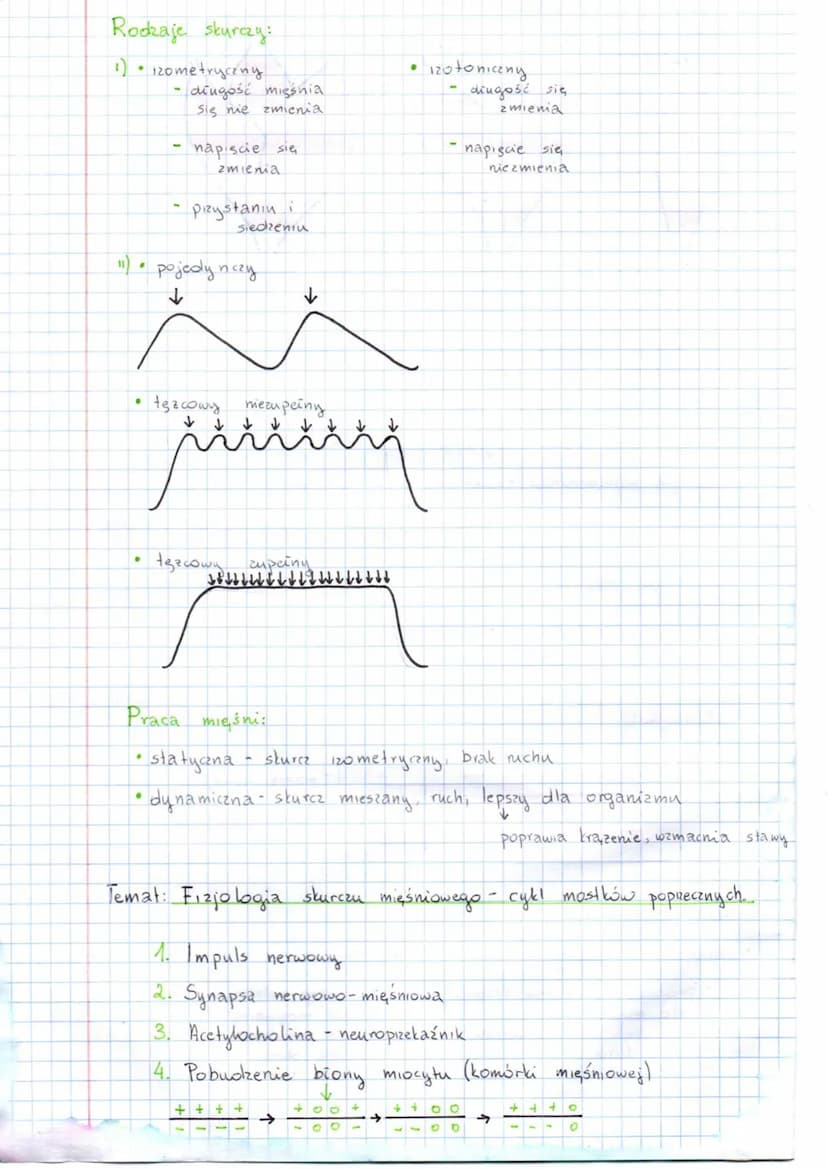 Rodzaje skurczy:
I) • izometryczny
- długość mięśnia
się nie zmienia
- napięcie się
zmienia
- przystaniu i
siedzeniu
• izotoniczny
- długość się
zmienia
- napięcie się
niezmienia
II) • pojedynczy
↓ ↓
• tężcowy niezupełny
↓ ↓ ↓ ↓ ↓ ↓ ↓ ↓
• tężcowy zupełny
Praca mięśni:
• statyczna - skurcz izometryczny, brak ruchu
• dynamiczna - skurcz mieszany, ruch, lepszy dla organizmu
↓
poprawia krążenie, wzmacnia stawy
Temat: Fizjologia skurczu mięśniowego - cykl mostków poprzecznych.
1. Impuls nerwowy
2. Synapsa nerwowo-mięśniowa
3. Acetylocholina - neuroprzekaźnik
4. Pobudzenie błony miocytu (komórki mięśniowej)
↓
+ + + + → + o o + → + + o o → + + + o
- - - - - o o - - - o o - - - o